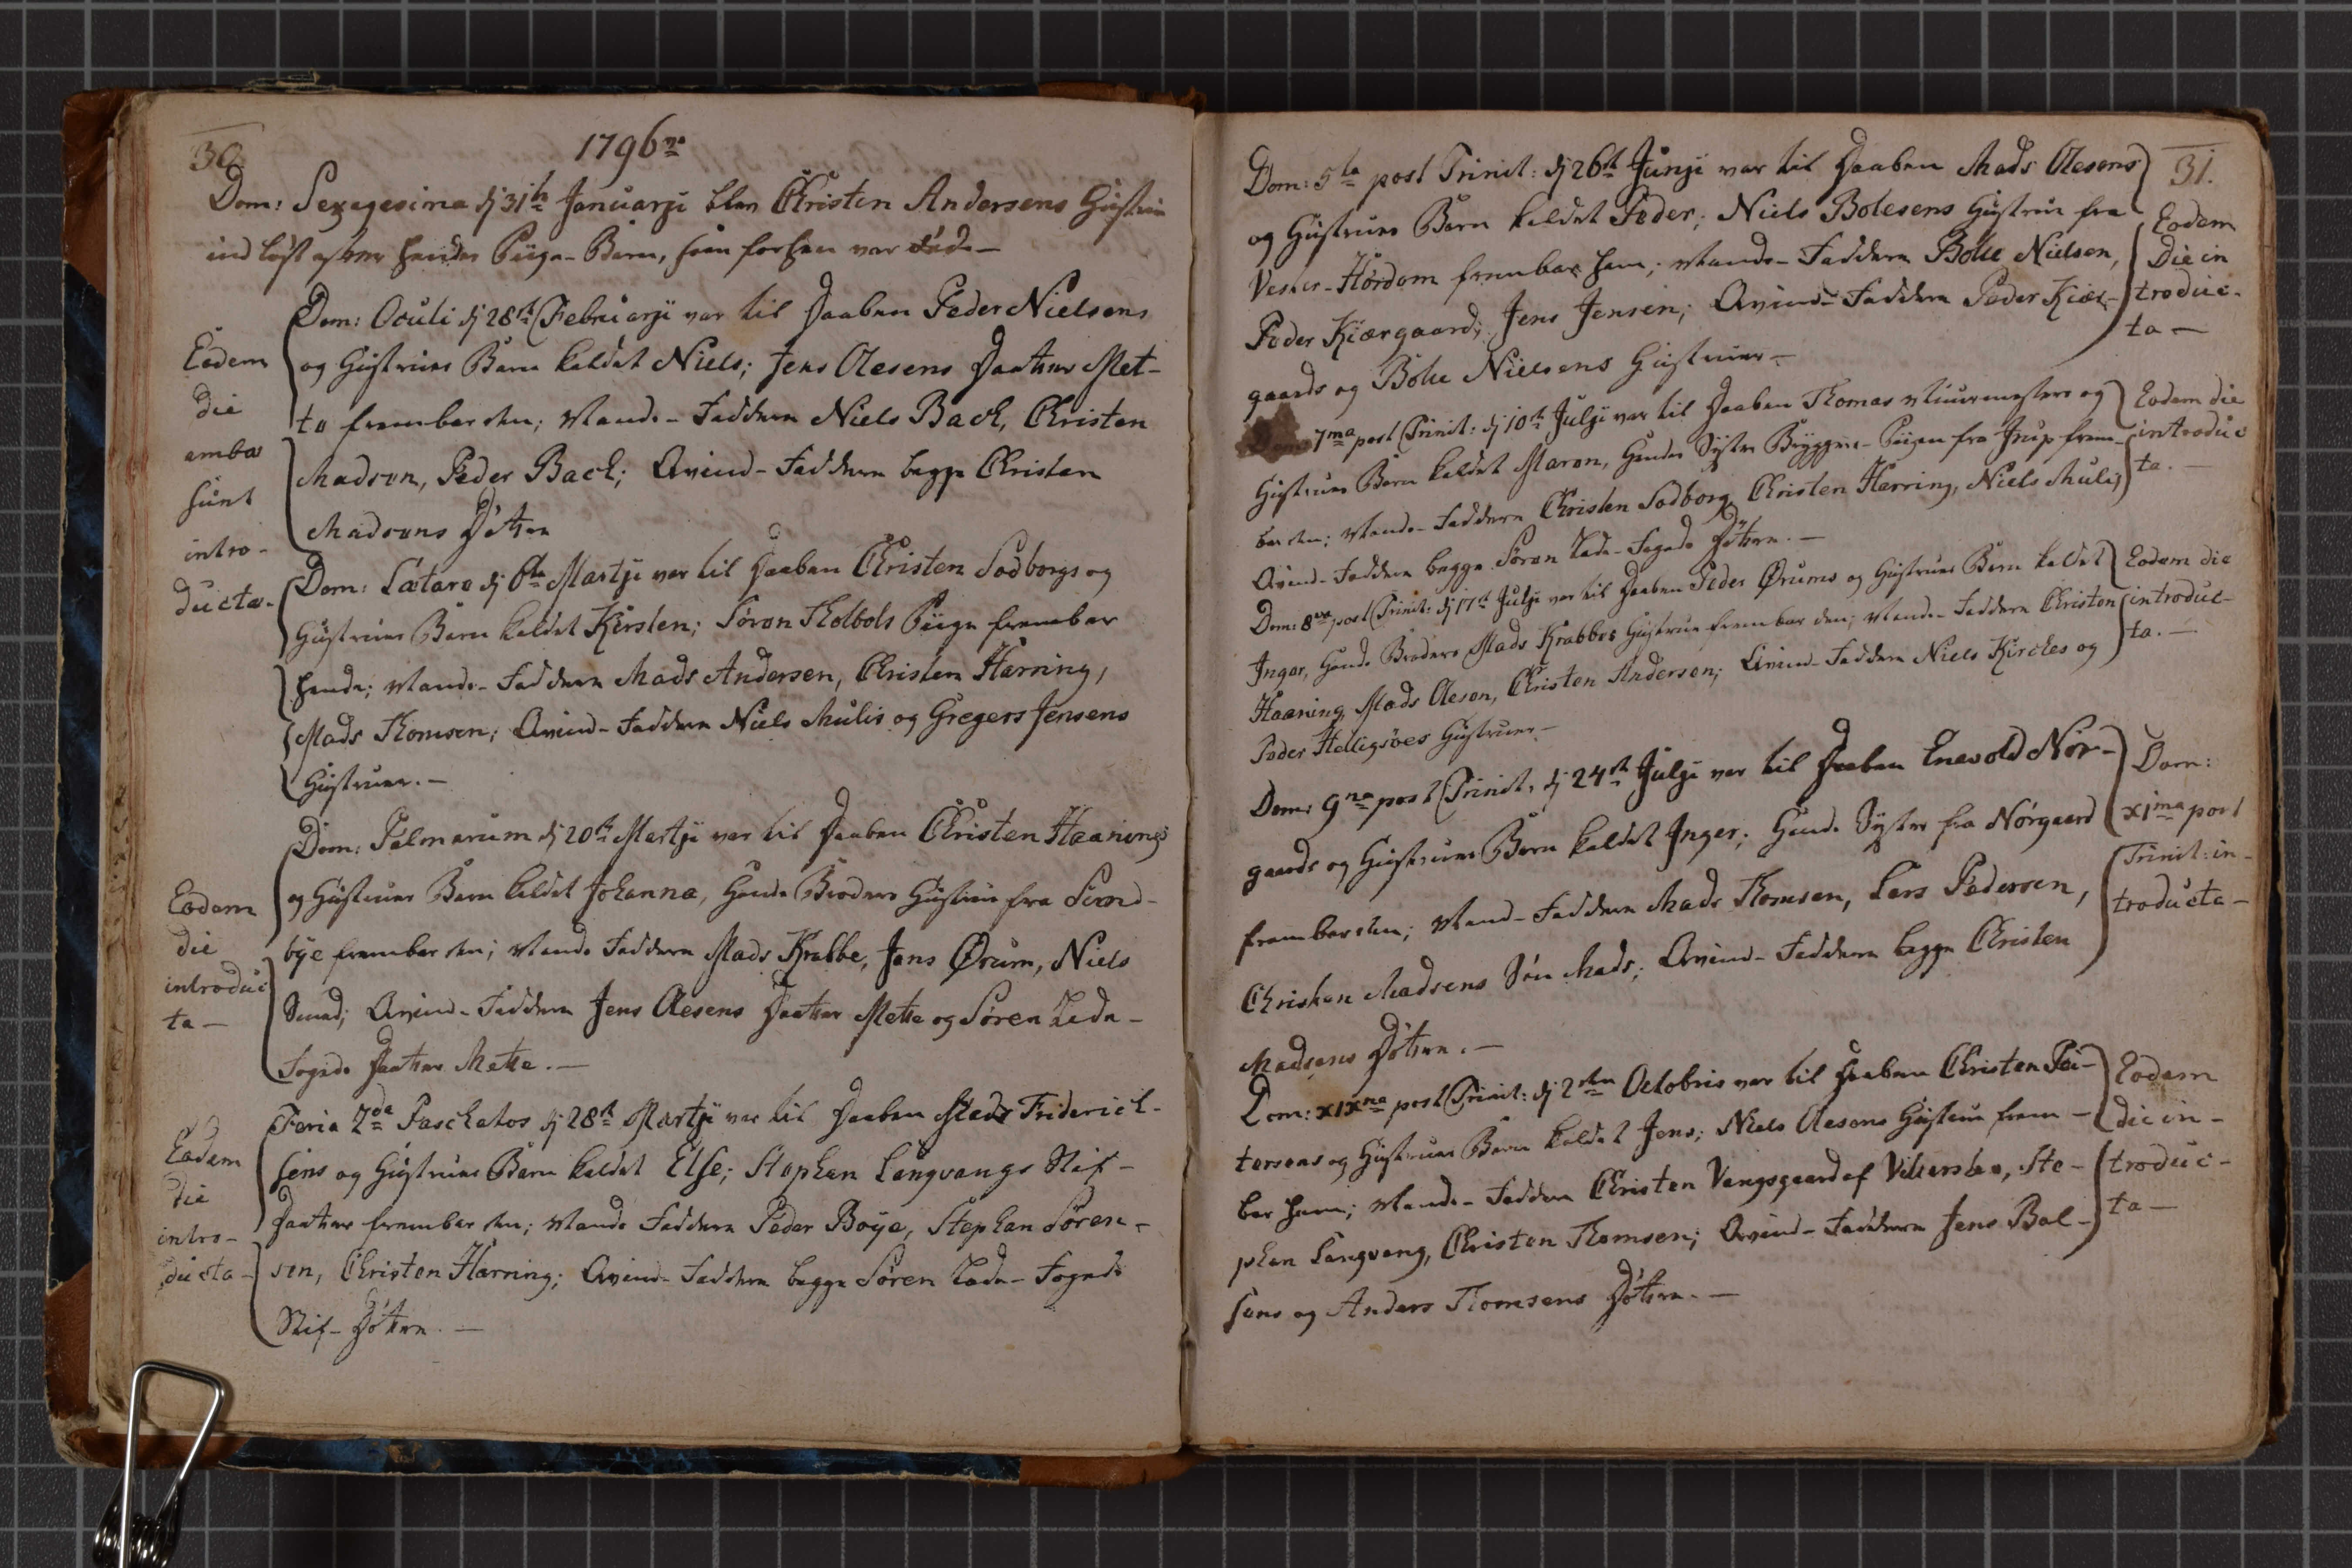 30.
1796ve
Dom: Sexagesima dj 31te Januarji blev Christen Andersens Hustrue
ind lost efter hendes Piige-Barn, som forhen var død-
Eodem
die
ambæ
sunt
intro-
ductæ-
Dom: Oculi dj 28de Februarji var til Daaben Peder Nielsens
og Hustrues Barn kaldet Niels; Jens Olesens Daatter Met-
te frembar den; Mands-Faddere Niels Back, Christen
Madsen, Peder Back; Qvind-Faddere begge Christen
Madsens Døttre
Dom: Lætare dj 6te Martji var til Daaben Christen Sodborgs og
Hustrues Barn kaldet Kirsten; Søren Tholbols Piige frembar
hende; Mands-Faddere Mads Andersen, Christen Harring,
Mads Thomsen; Qvind-Faddere Niels Mulis og Gregers Jensens
Hustruer.-
Eodem
die
introduc
ta-
Dom: Palmarum dj 20de Martji var til Daaben Christen Haanings
og Hustrues Barn kaldet Johanna, Hands Broders Hustrue fra Sund-
bye frembar den; Mands Faddere Mads Krabbe, Jens Ørum, Niels
Smed; Qvind-Faddere Jens Olesens Daatter Mette og Søren Lade-
Fogeds Daatter Mette.-
Eodem
die
intro-
ducta-
Feria 2da Paschatos dj 28de Martji var til Daaben Mads Friderich-
sens og Hustrues Barn kaldet Else; Stephan Langvangs Stif-
Daatter frembar den; Mands Faddere Peder Boye, Stephan Søren-
sen, Christen Harring; Qvind-Faddere begge Søren Lade-Fogeds
Stif-Døttre.-
31.
Dom: 5ta post Trinit: dj 26de Junji var til Daaben Mads Olesens
og Hustrues Barn kaldet Peder; Niels Bolesens Hustrue fra
Vester-Hørdom frembar ham; Mands-Faddere Bolle Nielsen,
Peder Kiærgaard, Jens Jensen; Qvind-Faddere Peder Kiær-
gaards og Bolle Nielsens Hustruer-
Eodem
Die in
troduc-
ta-
Dom: 7ma post Trinit: dj 10de Julji var til Daaben Thomas Muurmesters og
Hustrues Barn kaldet Maren, Hendes Syster Bryggers-Piigen fra Irup frem-
bar den; Mands-Faddere Christen Sodborg, Christen Harring, Niels Mulis;
Qvind-Faddere begge Søren Lade-Fogeds Døttre.-
Eodem die
introduc
ta.-
Dom: 8va post Trinit: dj 17de Julji var til Daaben Peder Ørums og Hustrues Barn kaldet
Inger, Hands Broders Mads Krabbes Hustrue frembar den; Mands-Faddere Christen
Haaning, Mads Olesen, Christen Andersen; Qvind-Faddere Niels Kirckes og
Peder Helligsøes Hustruer-
Eodem die
introduc-
ta.-
Dom: 9na post Trinit: dj 24de Julji var til Daaben Enevold Nør-
gaards og Hustrues Barn kaldet Inger; Hands Syster fra Nørgaard
frembar den; Mand-Faddere Mads Thomsen, Lars Pedersen,
Christen Madsens Søn Mads; Qvind-Faddere begge Christen
Madsens Døttre.-
Dom:
x1ma post
Trinit: in-
troducta-
Dom: x1xna post Trinit: dj 2den Octobris var til Daaben Christen Pei-
tersens og Hustrues Barn kaldet Jens; Niels Olesens Hustrue frem-
bar ham; Mands-Faddere Christen Vangsgaard af Vilserslev, Ste-
phan Langvang, Christen Thomsen; Qvind-Faddere Jens Bol-
sens og Anders Thomsens Døttre.-
Eodem
die in-
troduc-
ta-